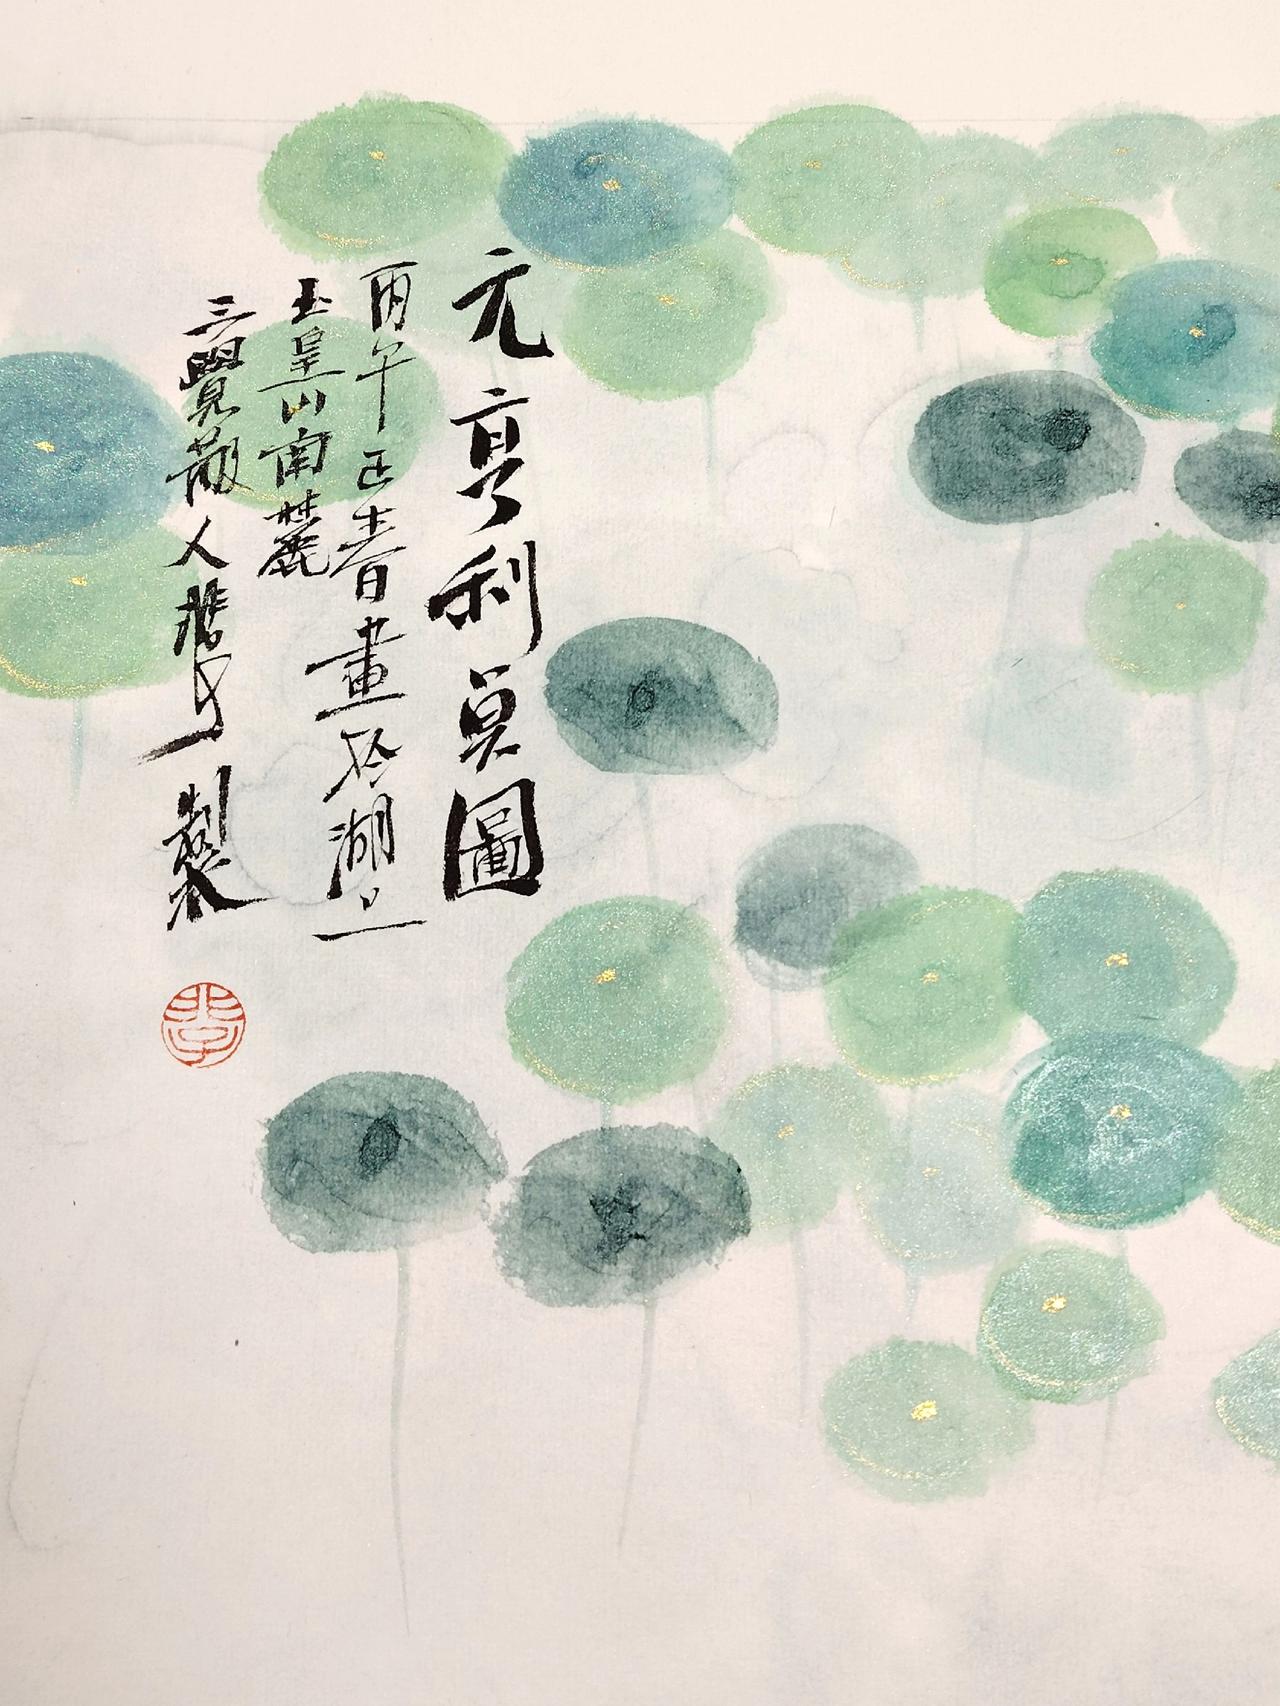 元亨利貞圖
丙午正春畫於湖上
玉皇山南麓
三覺散人
製